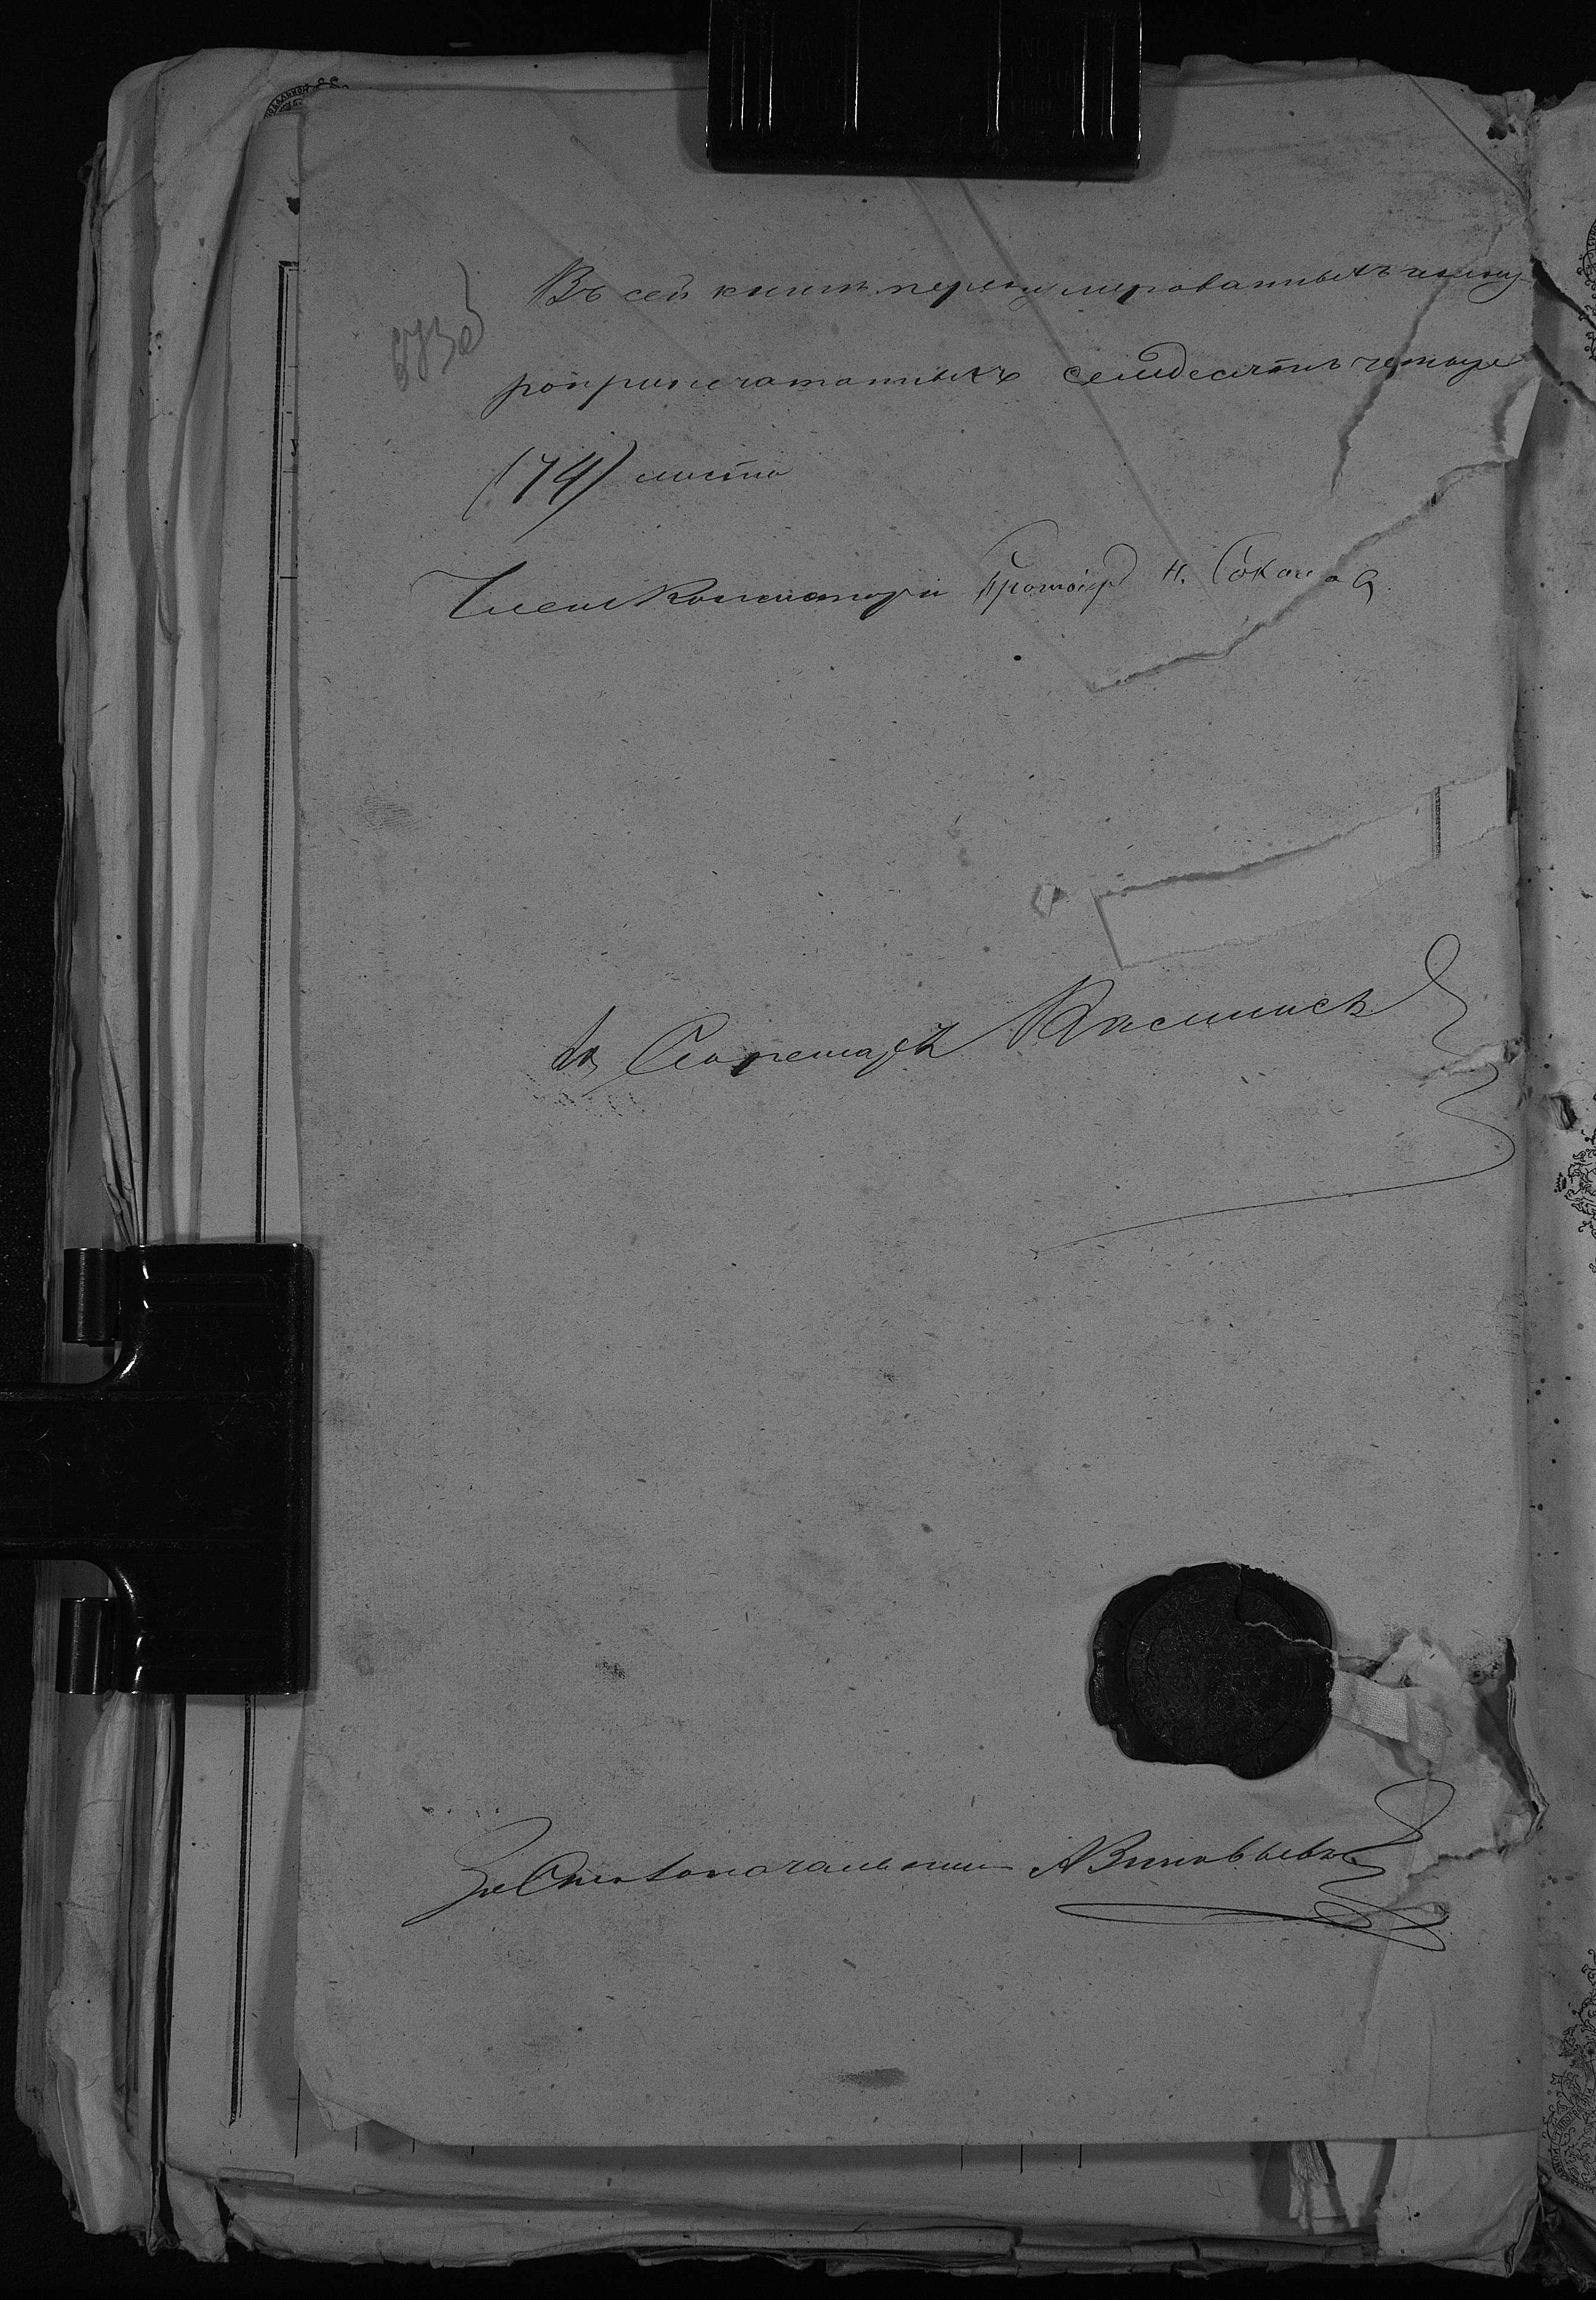 Въ сей книгѣ перенумерованныхъ и шну
роприпечатанныхъ семдесятъ четыре
(74) листа
Членъ Консисторіи Протоіер Н. Соколов
Секретарь
За Столоначальника А Виновьевъ